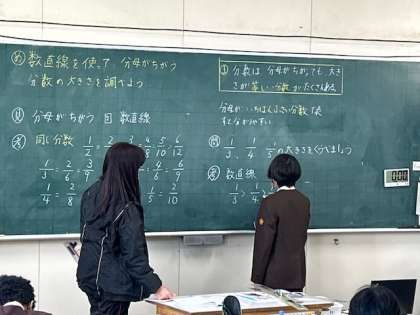 め 数直線を使って、分母がちがう
分数の大きさを調べよう
見 分母がちがう 図 数直線
考 同じ分数 1/2=2/4=3/6=4/8=5/10=6/12
1/3=2/6=3/9
4/6=6/9
1/4=2/8
1/5=2/10
分数は、分母がちがっても、大き
さが等しい分数がたくさんある。
分母がいちばん小さい分数で表
すと分かりやすい
問 1/3、1/4、1/5の大きさをくらべましょう
考 数直線
1/3>1/4>